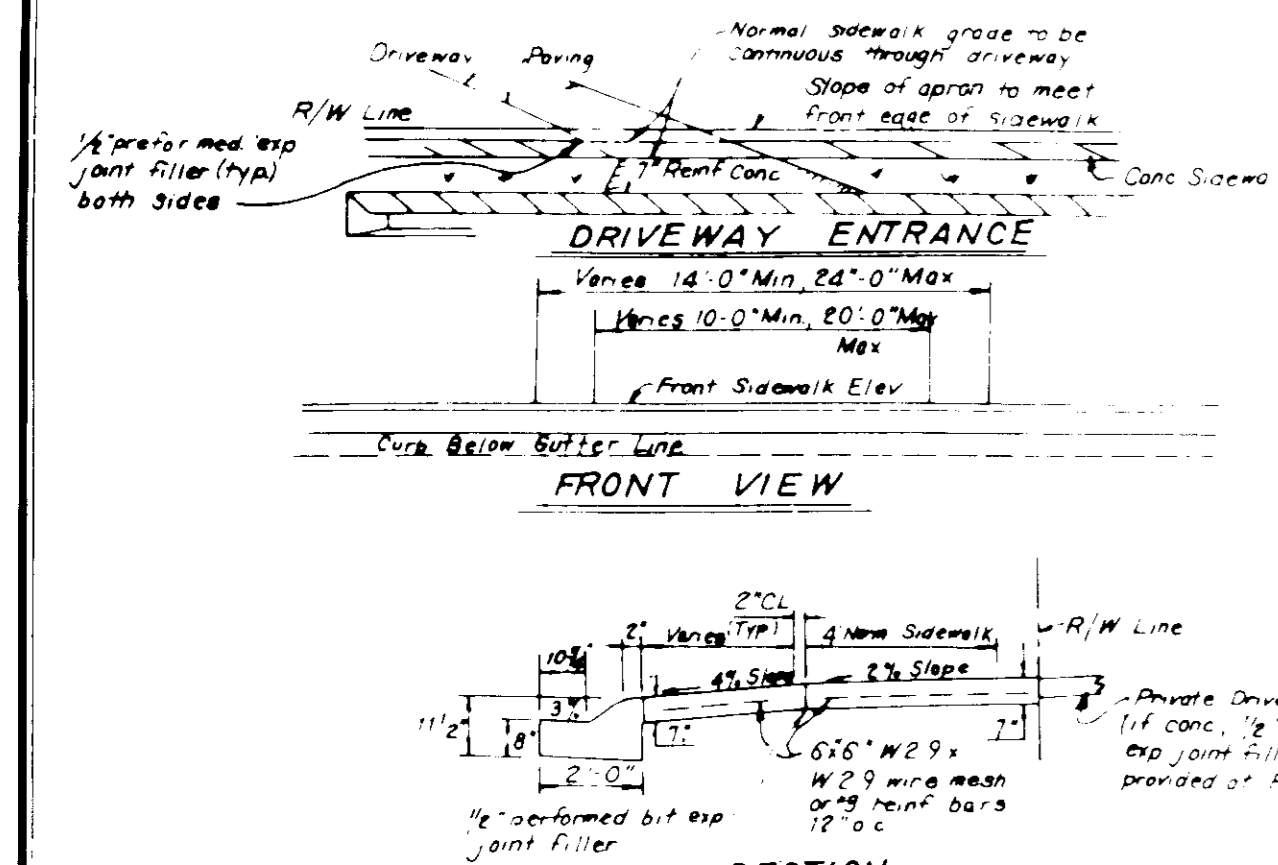 Normal sidewalk grade to be
continuous through driveway
Driveway Paving
Slope of apron to meet
front edge of sidewalk
R/W Line
1/2" preformed exp
joint filler (typ.)
both sides
7" Reinf Conc
Conc Sidewa
DRIVEWAY ENTRANCE
Varies 14'-0" Min, 24'-0" Max
Varies 10-0" Min., 20'-0" Max
Max
Front Sidewalk Elev
Curb Below Gutter Line
FRONT VIEW
2" CL
(Typ)
2" Varies
4' Norm Sidewalk
R/W Line
4% Slope
2% Slope
3
11 1/2"
8"
7"
7"
2'-0"
Private Drive
(if conc, 1/2"
exp joint fill
provided at
6"x6" W2.9 x
W2.9 wire mesh
or #3 reinf bars
12" o c
1/2" performed bit exp
joint filler